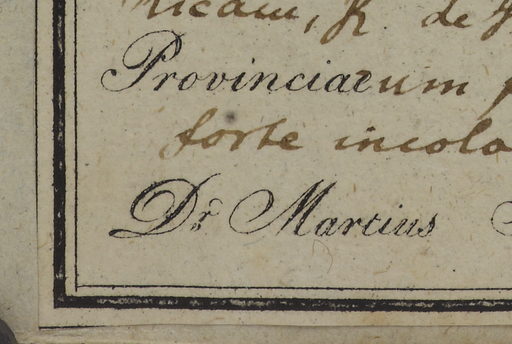 ricam, R de
Provinciarum
forte incola
Dr. Martius